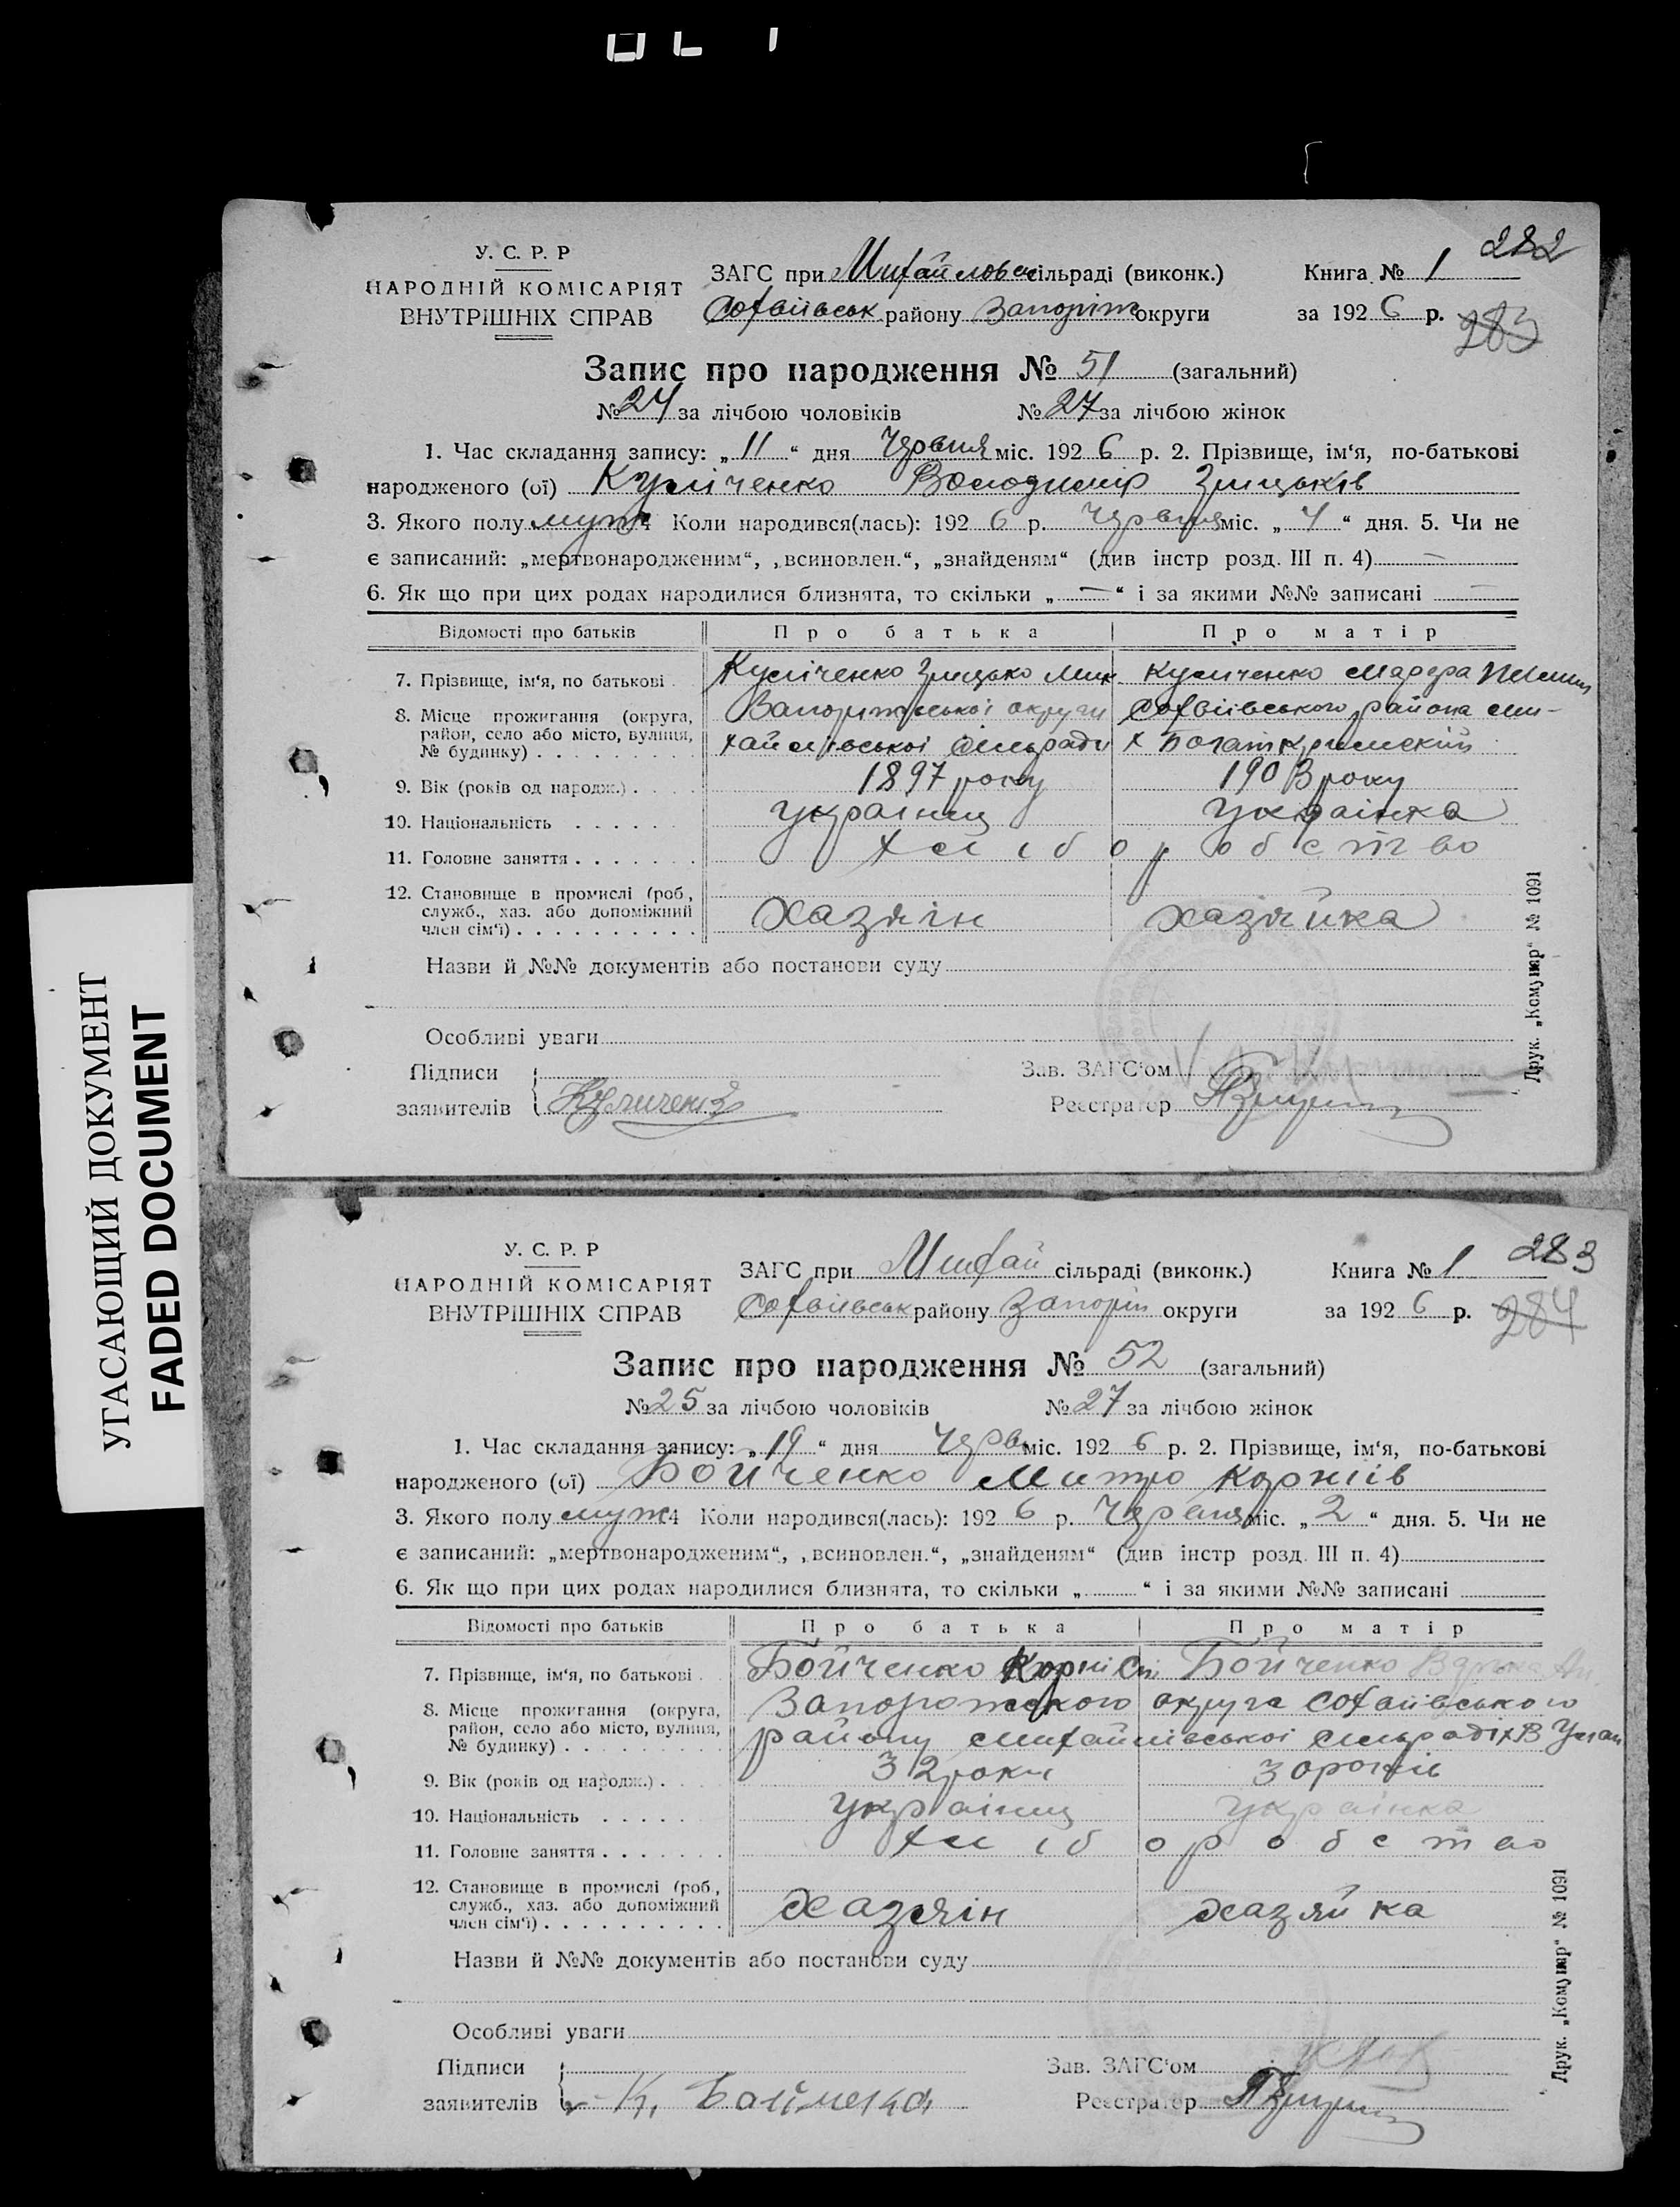 УГАСАЮЩИЙ ДОКУМЕНТ
FADED DOCUMENT
У. С. Р. Р
НАРОДНІЙ КОМІСАРІЯТ
ВНУТРІШНІХ СПРАВ
ЗАГС при Михайловсь сільраді (виконк.)
Софвіівськ району Запоріж округи
Книга № 1
282
за 1926 р.
283
Запис про народження № 51 (загальний)
№ 24 за лічбою чоловіків № 27 за лічбою жінок
1. Час складання запису: „11“ дня Червня міс. 1926 р. 2. Прізвище, ім‘я, по-батькові
народженого (ої) Куліченко Володимір Грицьків
3. Якого полу муж 4 Коли народився(лась): 1926 р. Червня міс. „4“ дня. 5. Чи не
є записаний: „мертвонародженим“, „всиновлен.“, „знайденям“ (див інстр розд. III п. 4) —
6. Як що при цих родах народилися близнята, то скільки „—“ і за якими №№ записані —
Відомості про батьків Про батька Про матір
7. Прізвище, ім‘я, по батькові Куліченко Грицько Мик. Куліченко
8. Місце прожигання (округа, район, село або місто, вулиця, № будинку) Запоріжської округи Софвіівського района Ми-
хайлівської сільради х
9. Вік (років од народж.) 1897 року 1903 року
10. Національність українец українка
11. Головне заняття хліборобство
12. Становище в промислі (роб., служб., хаз. або допоміжний член сім‘ї) хазяін хазяйка
Назви й №№ документів або постанови суду
Особливі уваги
Підписи
заявителів Куличенко
Зав. ЗАГС‘ом
Реєстратор
Друк. „Комунар“ № 1091
У. С. Р. Р
НАРОДНІЙ КОМІСАРІЯТ
ВНУТРІШНІХ СПРАВ
ЗАГС при Михай сільраді (виконк.)
Софвіівськ району Запоріж округи
Книга № 1
283
за 1926 р.
284
Запис про народження № 52 (загальний)
№ 25 за лічбою чоловіків № 27 за лічбою жінок
1. Час складання запису: „19“ дня Черв міс. 1926 р. 2. Прізвище, ім‘я, по-батькові
народженого (ої) Бойченко Митро Корніів
3. Якого полу муж 4 Коли народився(лась): 1926 р. Червня міс. „2“ дня. 5. Чи не
є записаний: „мертвонародженим“, „всиновлен.“, „знайденям“ (див інстр розд. III п. 4)
6. Як що при цих родах народилися близнята, то скільки „ “ і за якими №№ записані
Відомості про батьків Про батька Про матір
7. Прізвище, ім‘я, по батькові Бойченко Корній Бойченко
8. Місце прожигання (округа, район, село або місто, вулиця, № будинку) Запорожського округа Софіівського
району Михайлівської сільраді
9. Вік (років од народж.) 32 роки 30
10. Національність українец українка
11. Головне заняття хліборобство
12. Становище в промислі (роб., служб., хаз. або допоміжний член сім‘ї) хазяін хазяйка
Назви й №№ документів або постанови суду
Особливі уваги
Підписи
заявителів К. Бойченко
Зав. ЗАГС‘ом
Реєстратор
Друк. „Комунар“ № 1091